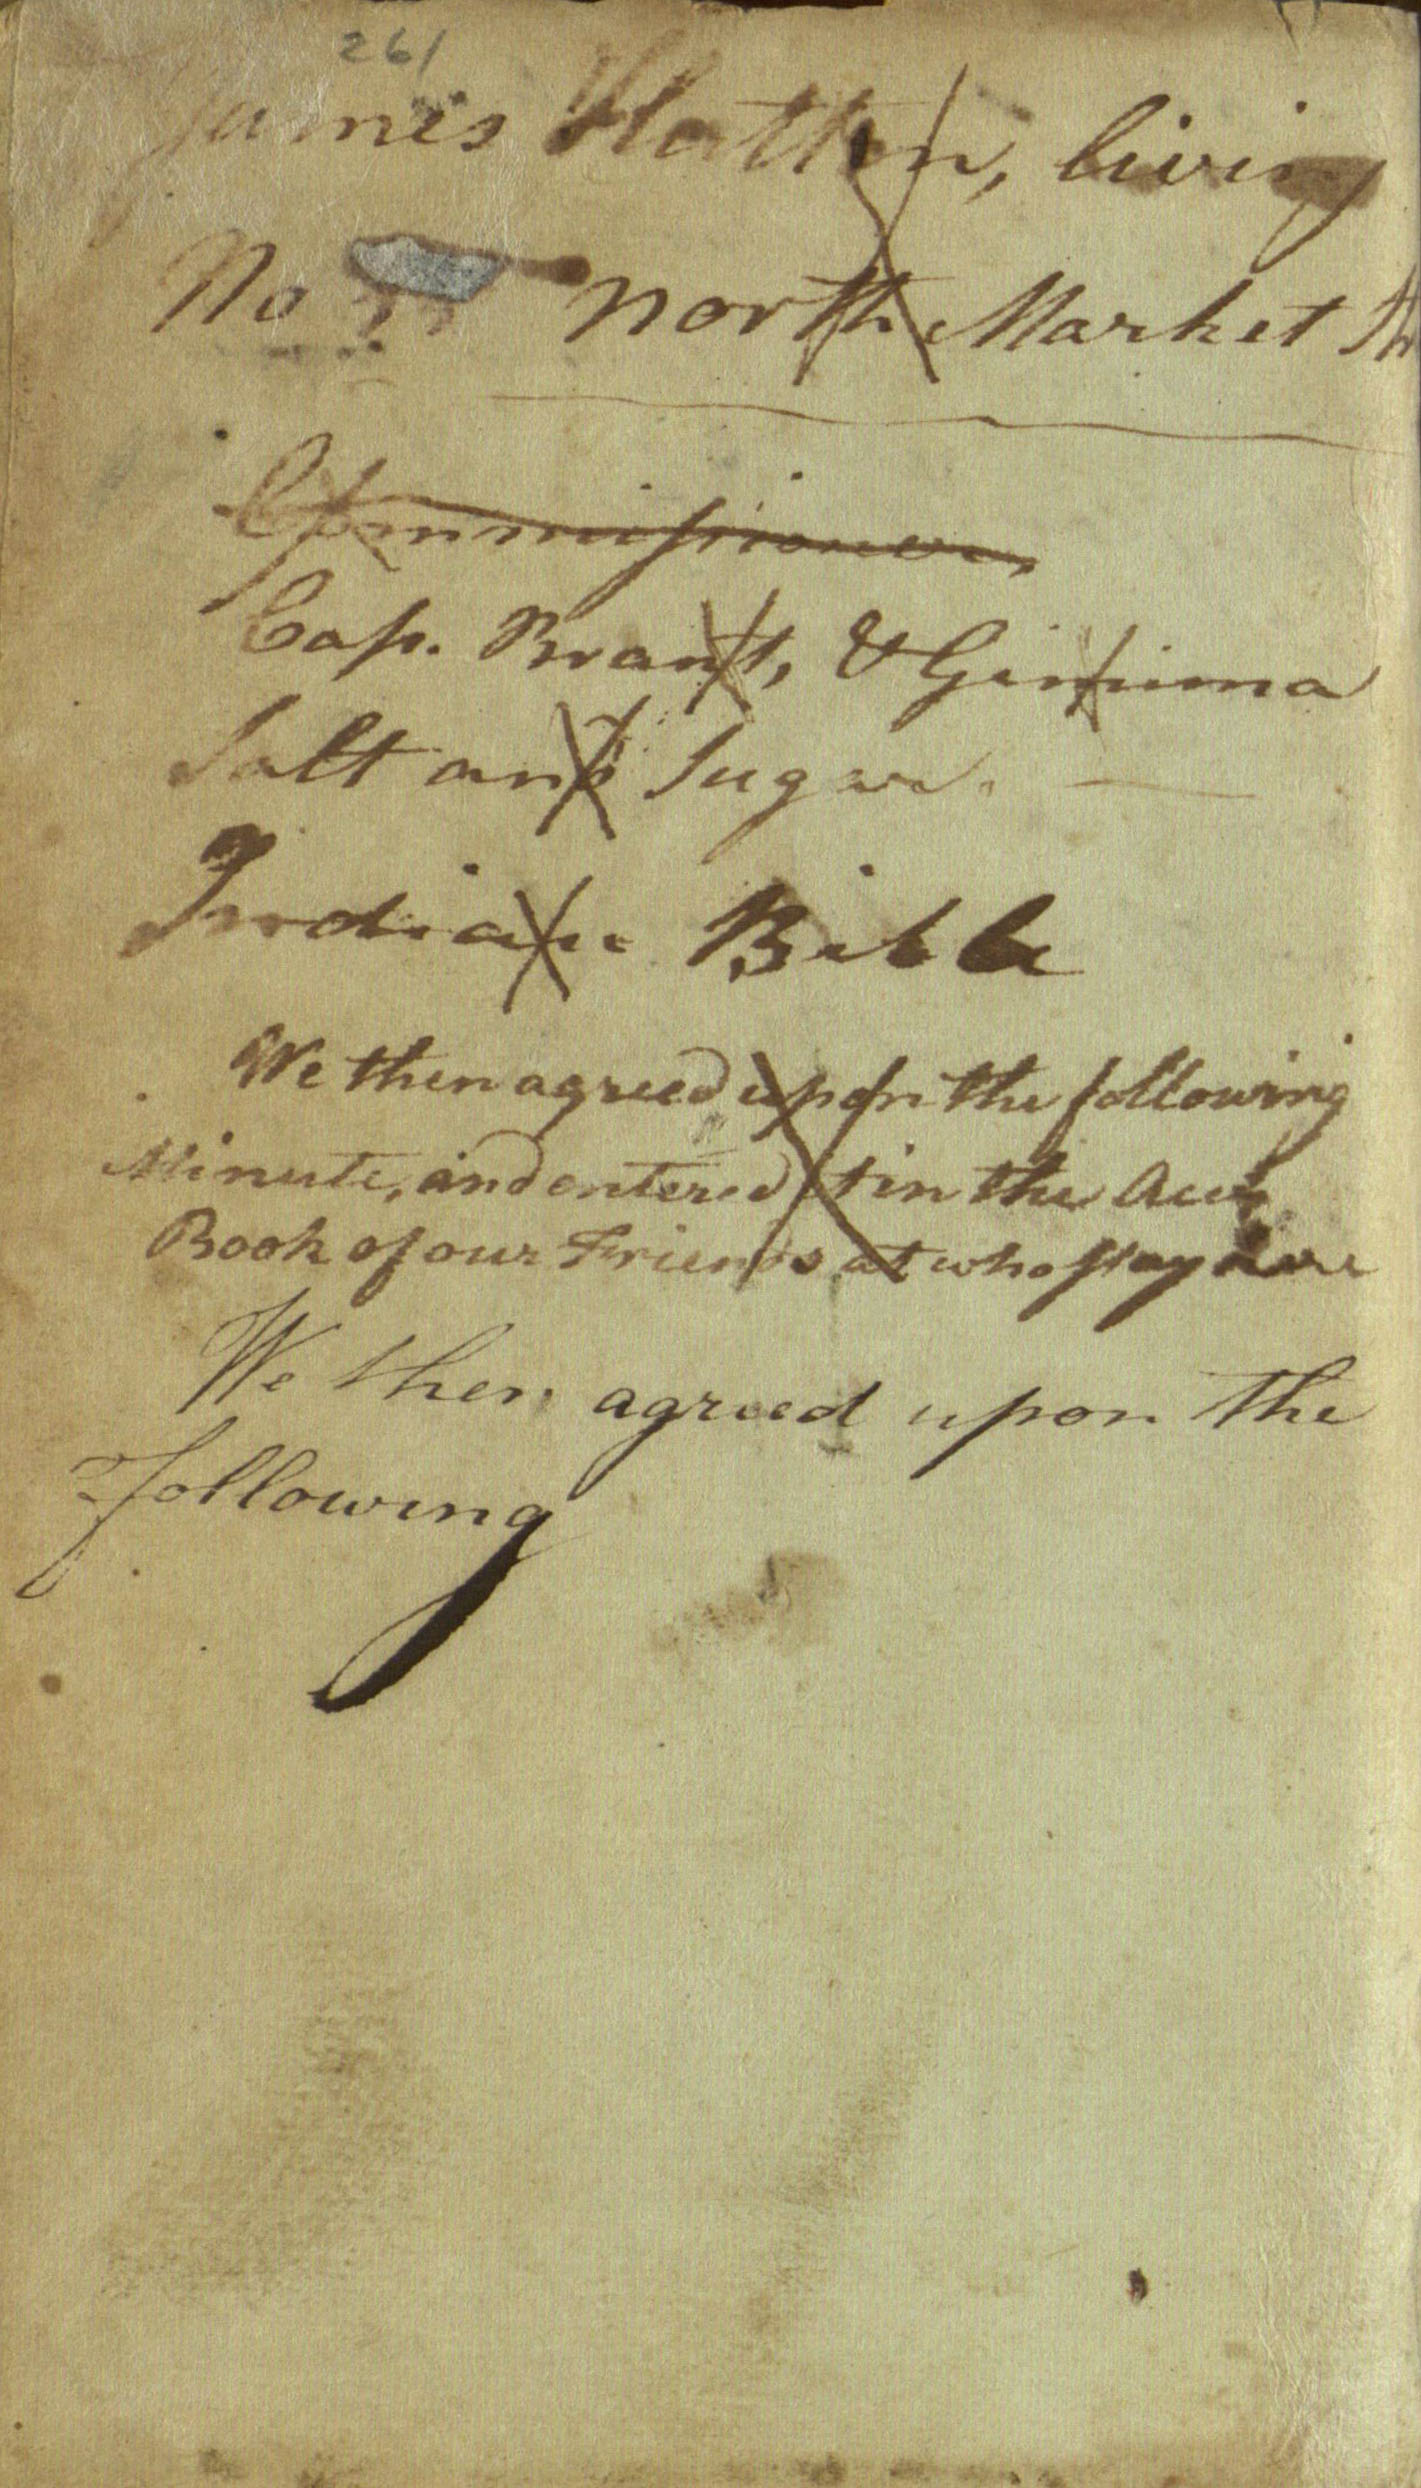 261
James Hatton, living
No north Market
Commissioners
Cap. Brant, &
Salt and Sugar.
Indian Bible
We then agreed upon the following
Minute, and entered it in the
Book of our Friends at who stay here
We then agreed upon the
following